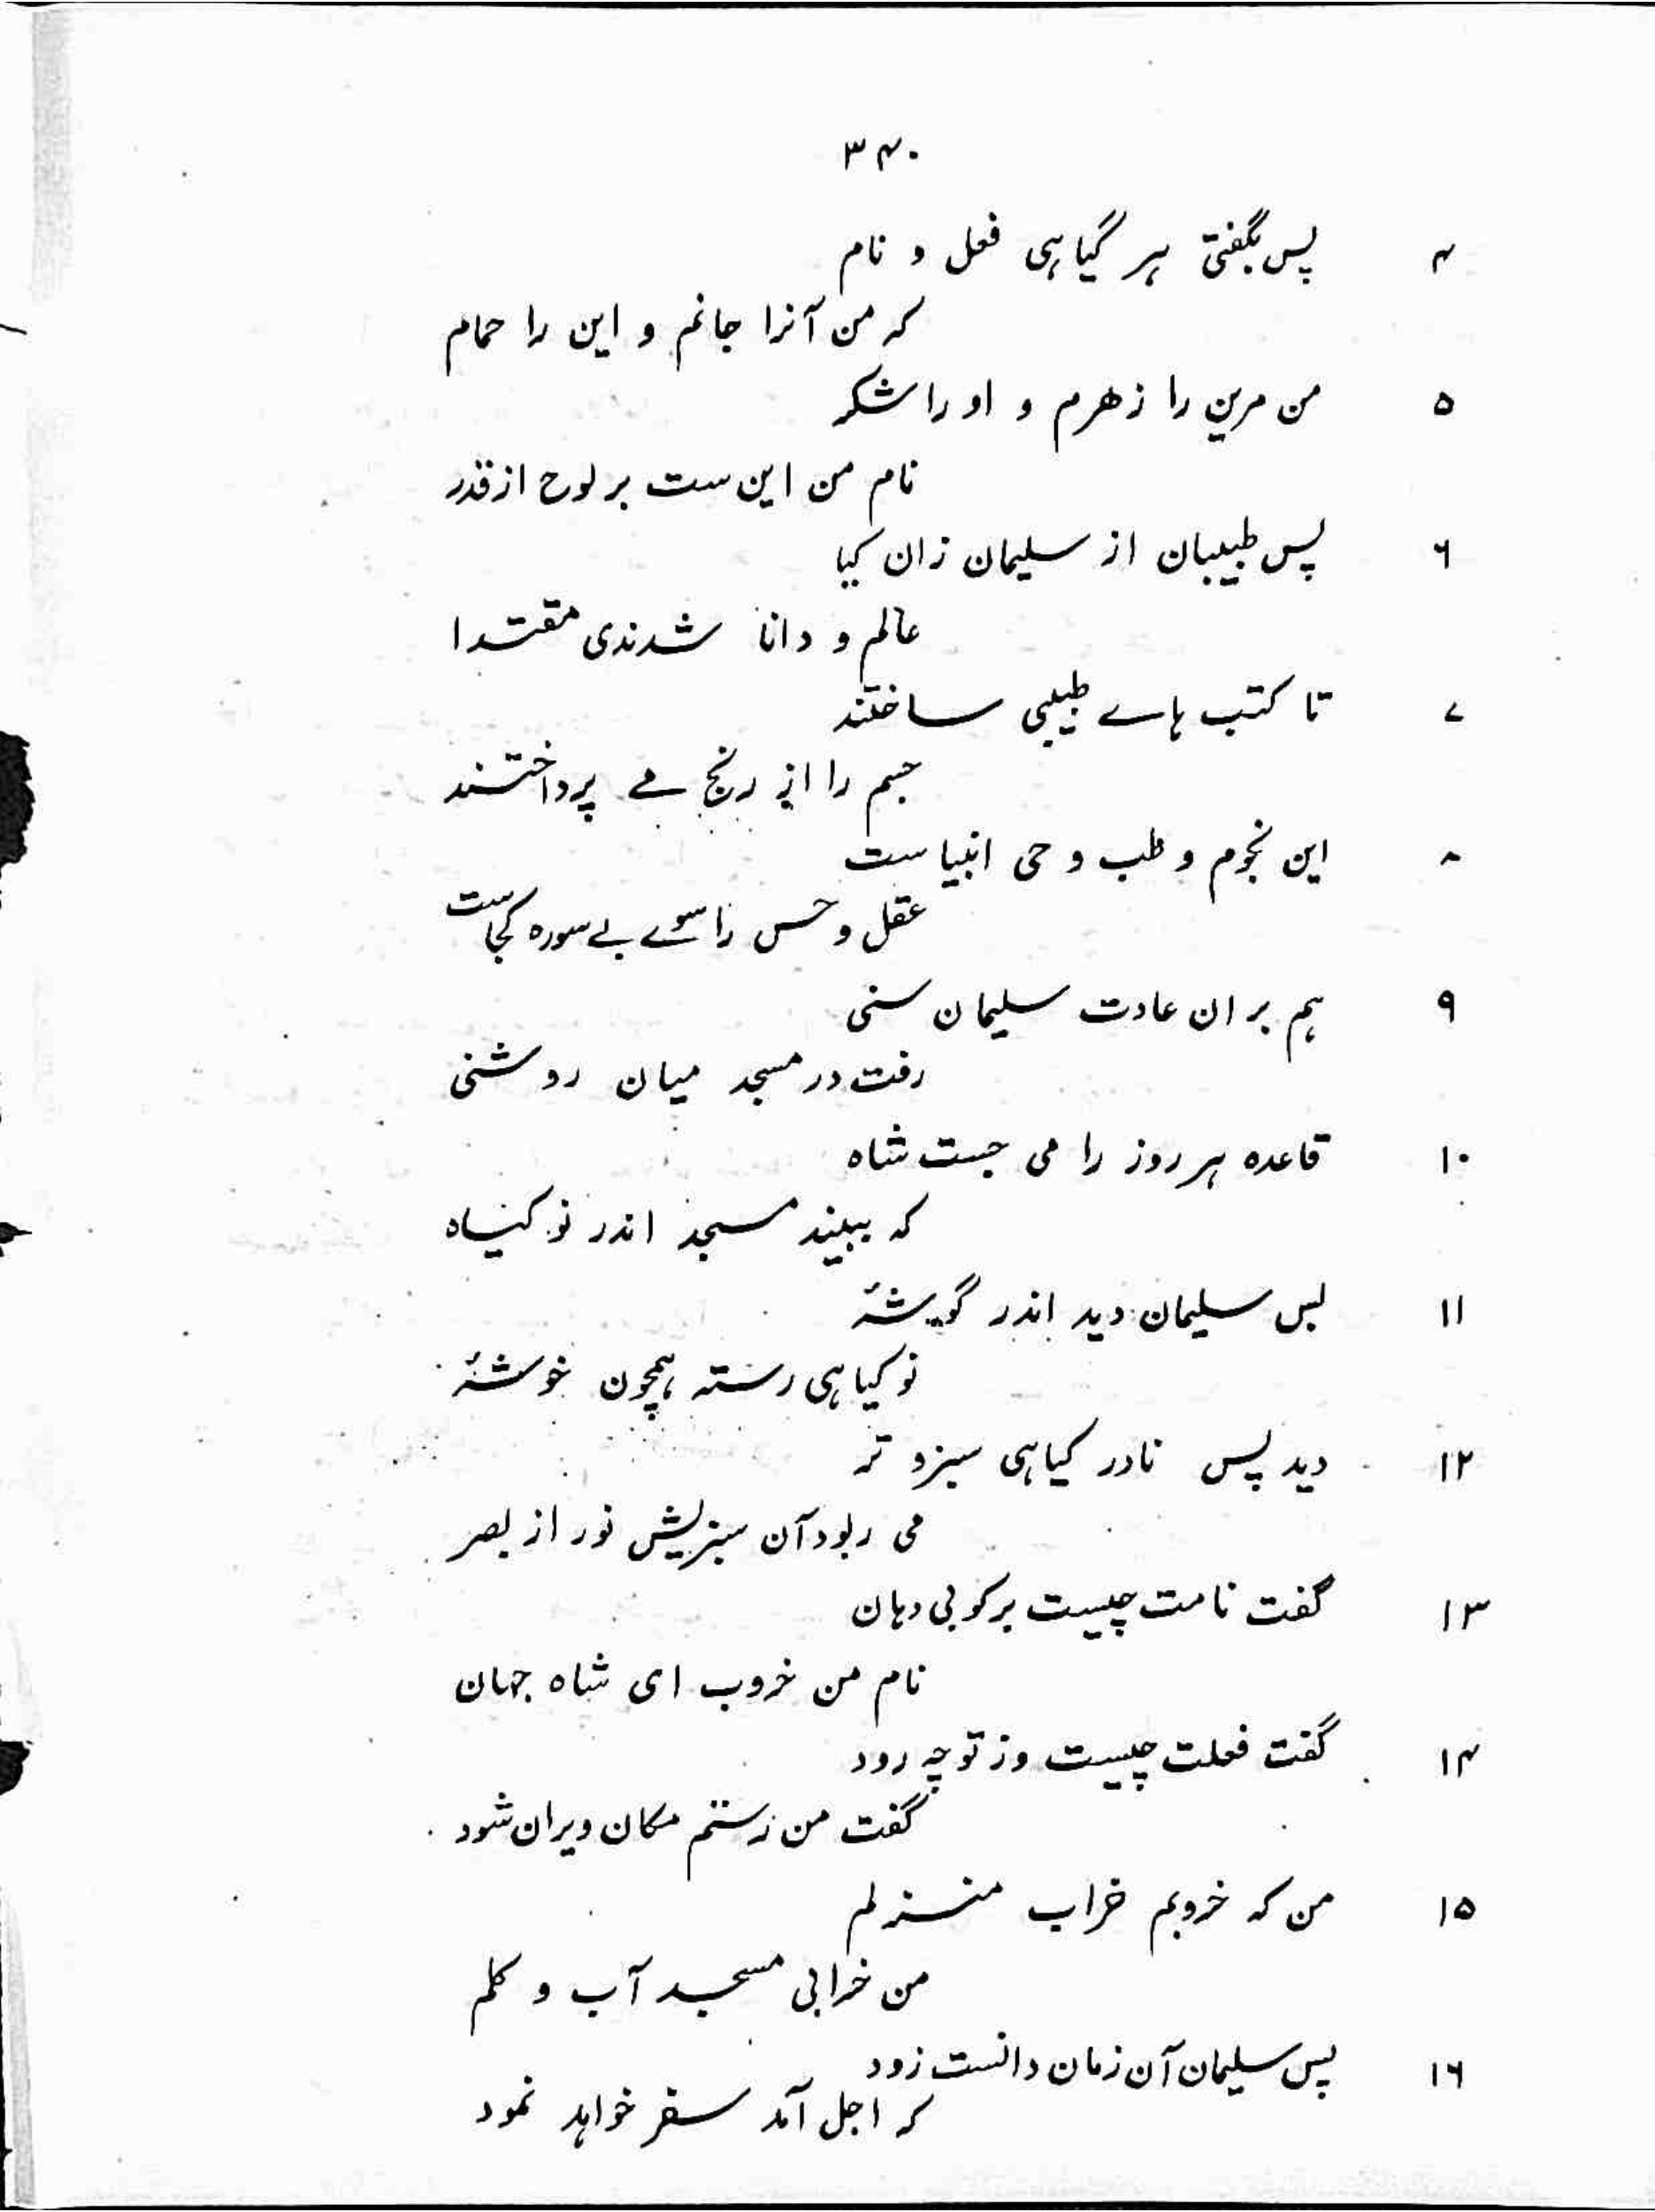 ۳۴۰
۴ پس بگفتی ہر گیاہی فعل و نام
کہ من آنرا جانم و این را حمام
۵ من مرین را زهرم و او را شکر
نام من این ست بر لوح از قدر
۶ پس طبیبان از سلیمان زان کیا
عالم و دانا شدندی مقتدا
۷ تا کتب ہاے طبیبی ساختند
جسم را از رنج مے پرداختند
۸ این نجوم و طب و حی انبیا ست
عقل و حس را سوے بے سوره کجاست
۹ ہم بر ان عادت سلیمان سنی
رفت در مسجد میان روشنی
۱۰ قاعده ہر روز را می جست شاه
کہ ببیند مسجد اندر نو کنیاه
۱۱ بس سلیمان دید اندر گوشۂ
نو کیاہی رستہ ہمچون خوشۂ
۱۲ دید پس نادر کیاہی سبز و تر
می ربود آن سبزیش نور از بصر
۱۳ گفت نامت چیست برکو بی دہان
نام من خروب ای شاه جہان
۱۴ گفت فعلت چیست وز تو چہ رود
گفت من رستم مکان ویران شود
۱۵ من کہ خروبم خراب منزلم
من خرابی مسجد آب و کلم
۱۶ پس سلیمان آن زمان دانست زود
کہ اجل آمد سفر خواہد نمود